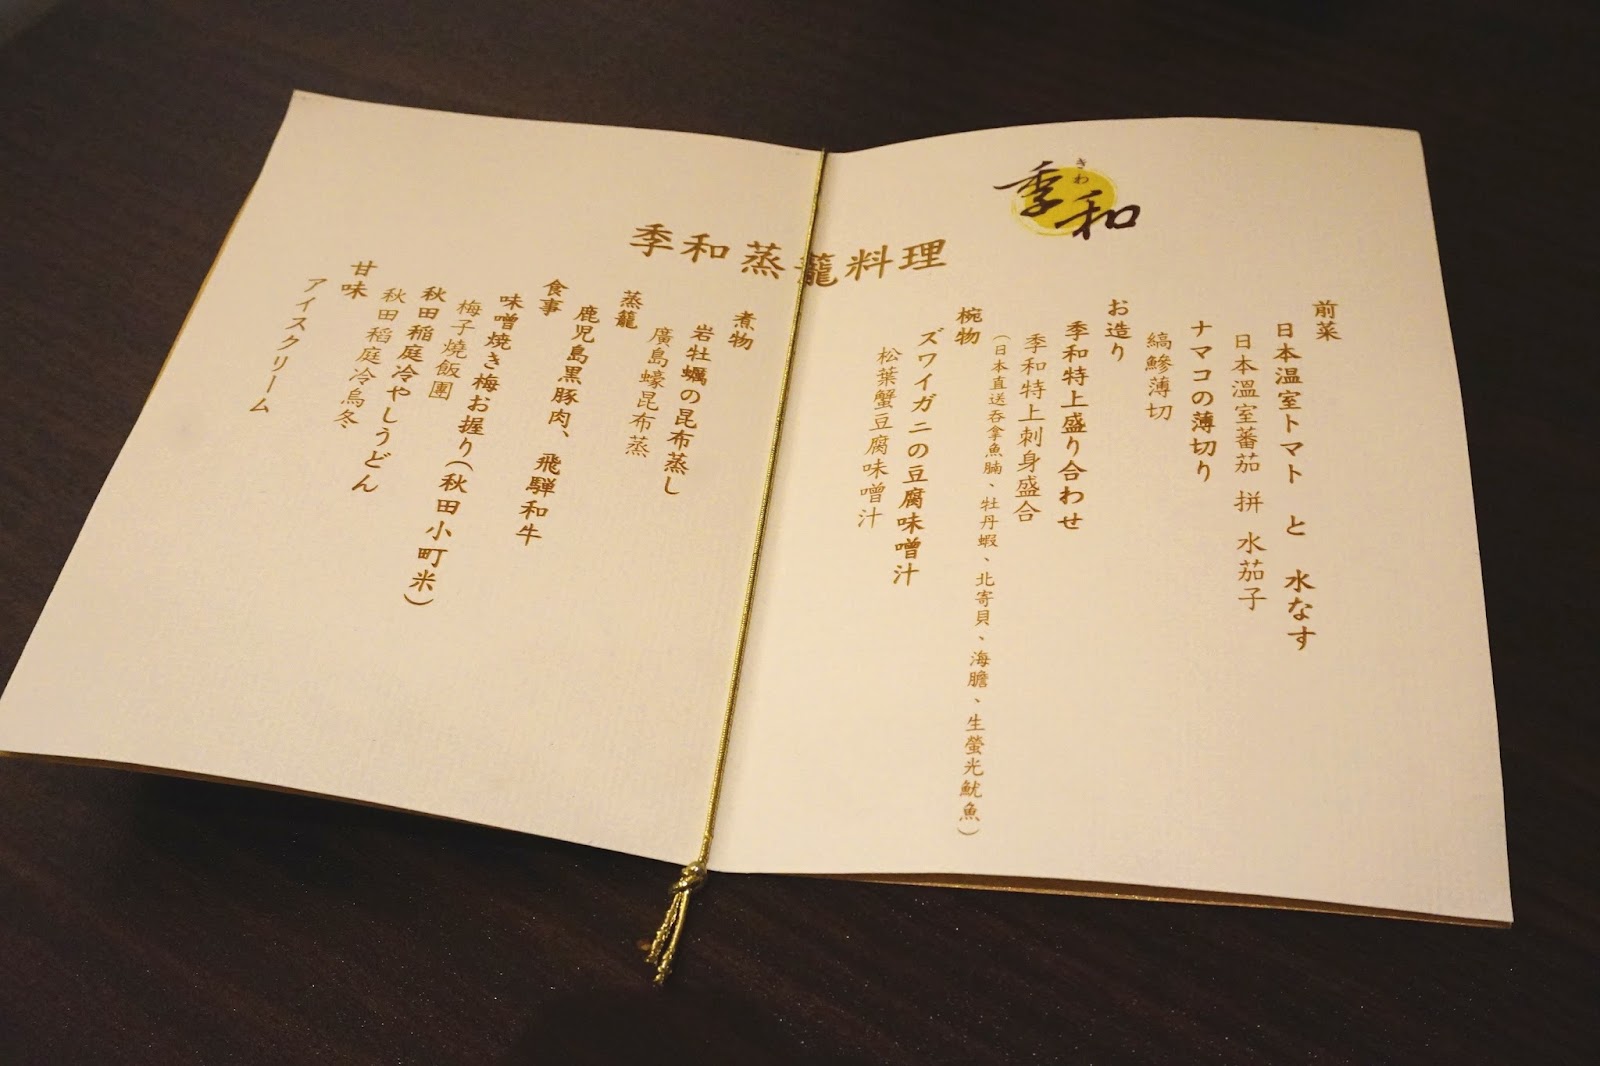 きわ
季和
季和蒸籠料理
前菜
日本温室トマト と 水なす
日本溫室蕃茄 拼 水茄子
ナマコの薄切り
縞鰺薄切
お造り
季和特上盛り合わせ
季和特上刺身盛合
(日本直送吞拿魚腩、牡丹蝦、北寄貝、海膽、生螢光魷魚)
椀物
ズワイガニの豆腐味噌汁
松葉蟹豆腐味噌汁
煮物
岩牡蠣の昆布蒸し
廣島蠔昆布蒸
蒸籠
鹿児島黒豚肉、飛騨和牛
食事
味噌焼き梅お握り(秋田小町米)
梅子燒飯團
秋田稲庭冷やしうどん
秋田稻庭冷烏冬
甘味
アイスクリーム